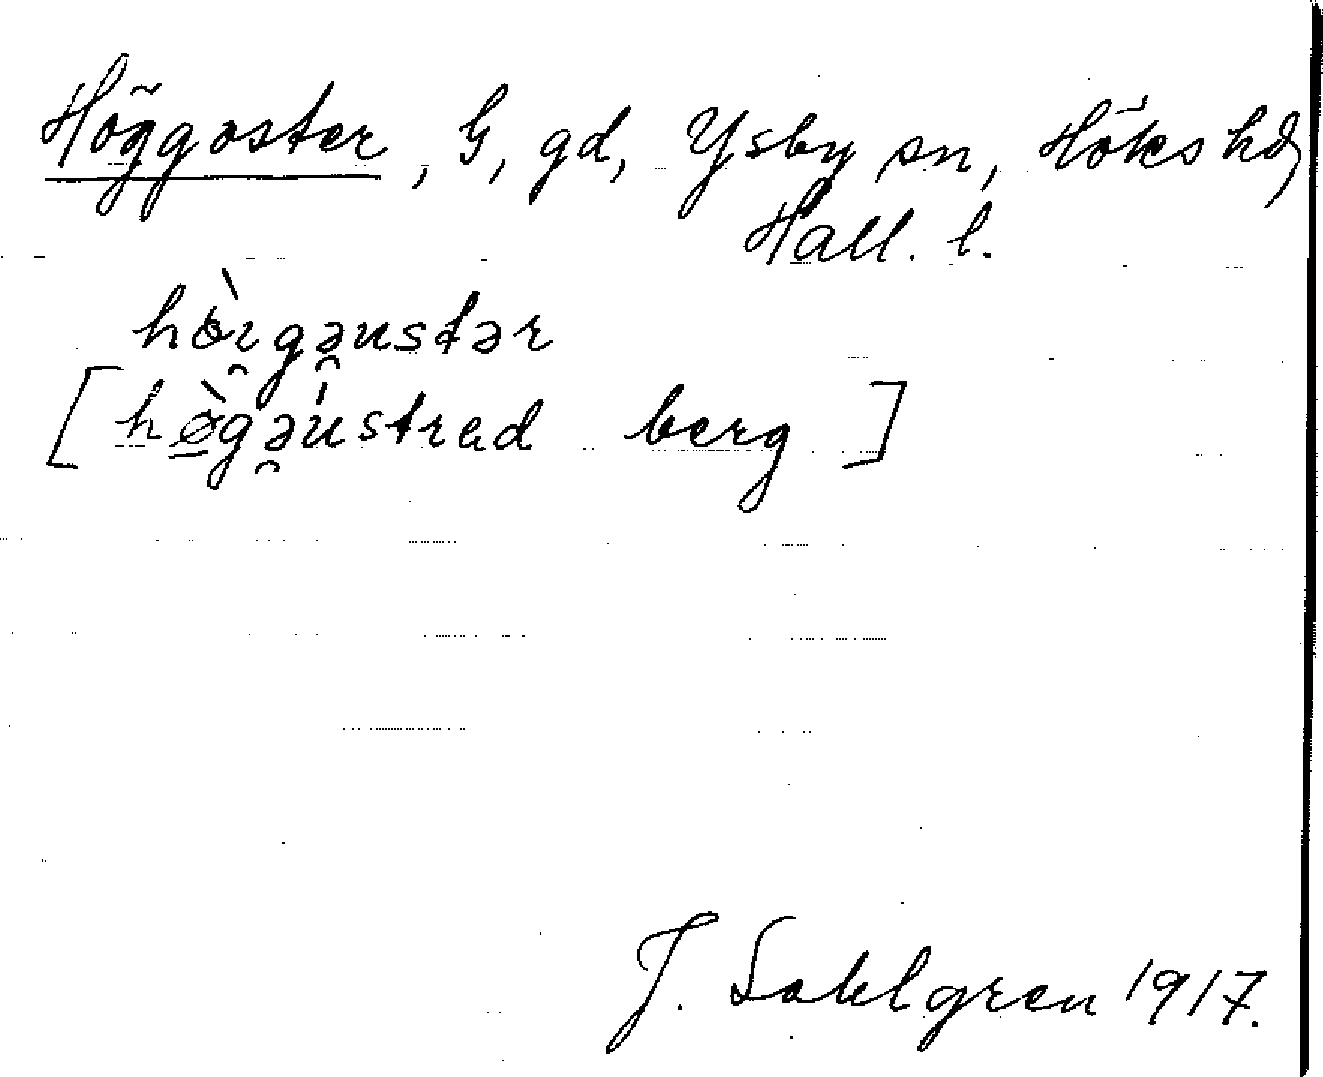 Höggoster, G, gd, Ysby sn, Höks hd,
Hall. l.
hò̤ɪ̯gə̯ustər
[hø̀gə̯ústrad berg]
J. Sahlgren 1917.